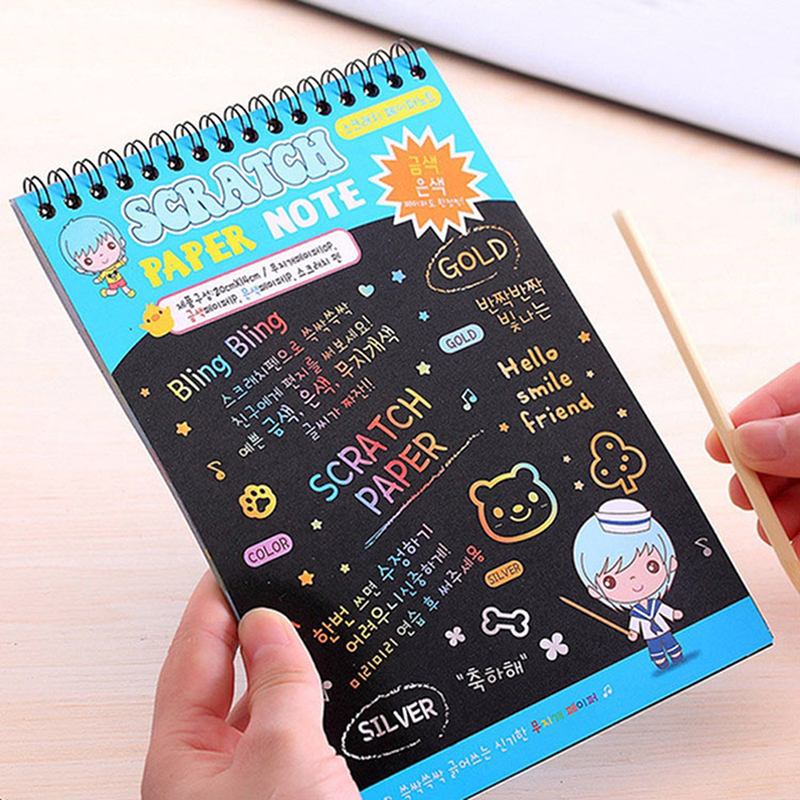 스크래치 페이퍼노트
SCRATCH
PAPER NOTE
금색
은색
페이퍼도 한정판!
제품구성:20cmX14cm / 무지개페이퍼10P,
금색페이퍼1P, 은색페이퍼1P, 스크래치 펜
GOLD
Bling Bling
스크래치펜으로 쓱싹쓱싹
친구에게 편지를 써보세요!
예쁜 금색, 은색, 무지개색
글씨가 짜잔!!
GOLD
반짝반짝
빛나는
Hello
smile
friend
SCRATCH
PAPER
COLOR
한번 쓰면 수정하기
어려우니신중하게!
미리미리 연습 후 써주세용
SILVER
"축하해"
SILVER
쓱싹쓱싹 긁어쓰는 신기한 무지개 페이퍼